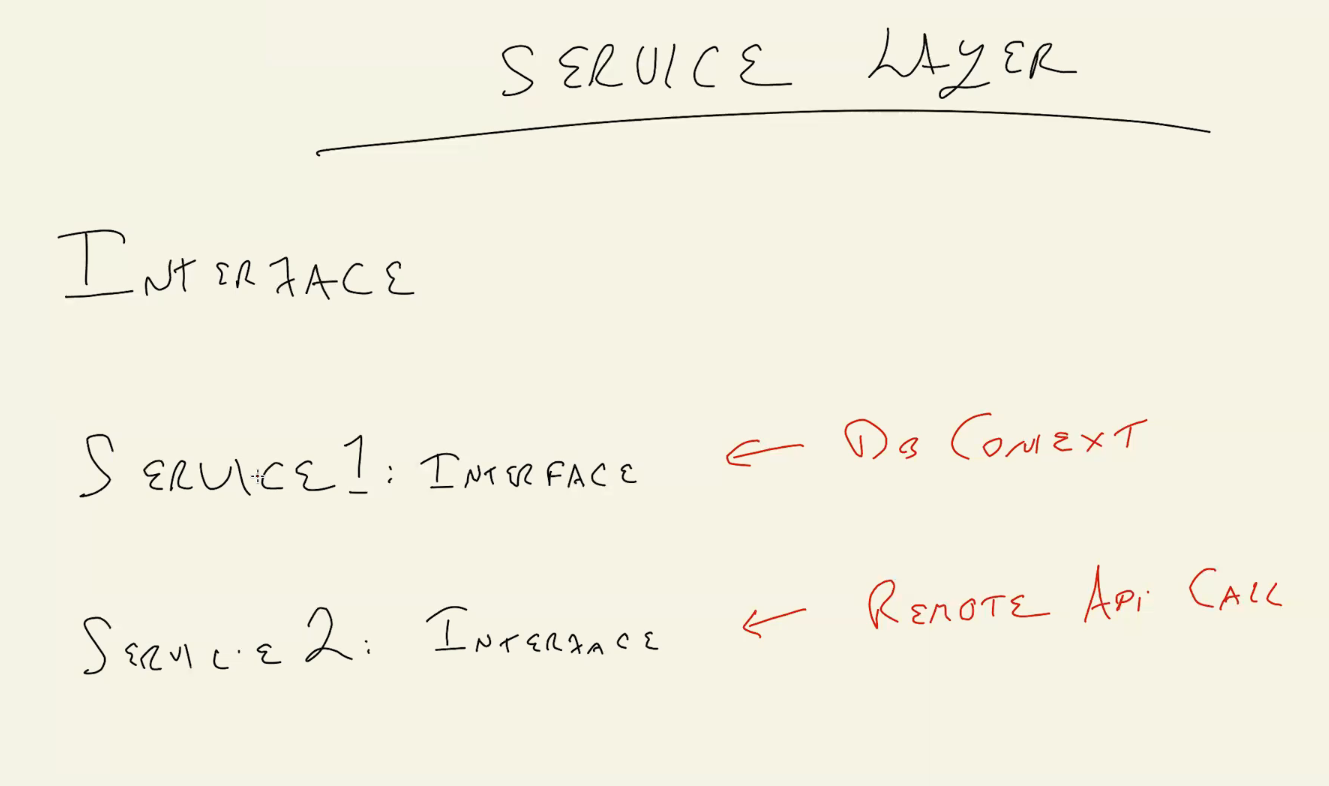 SERVICE LAYER
INTERFACE
SERVICE1: INTERFACE ← DB CONTEXT
SERVICE 2: INTERFACE ← REMOTE API CALL